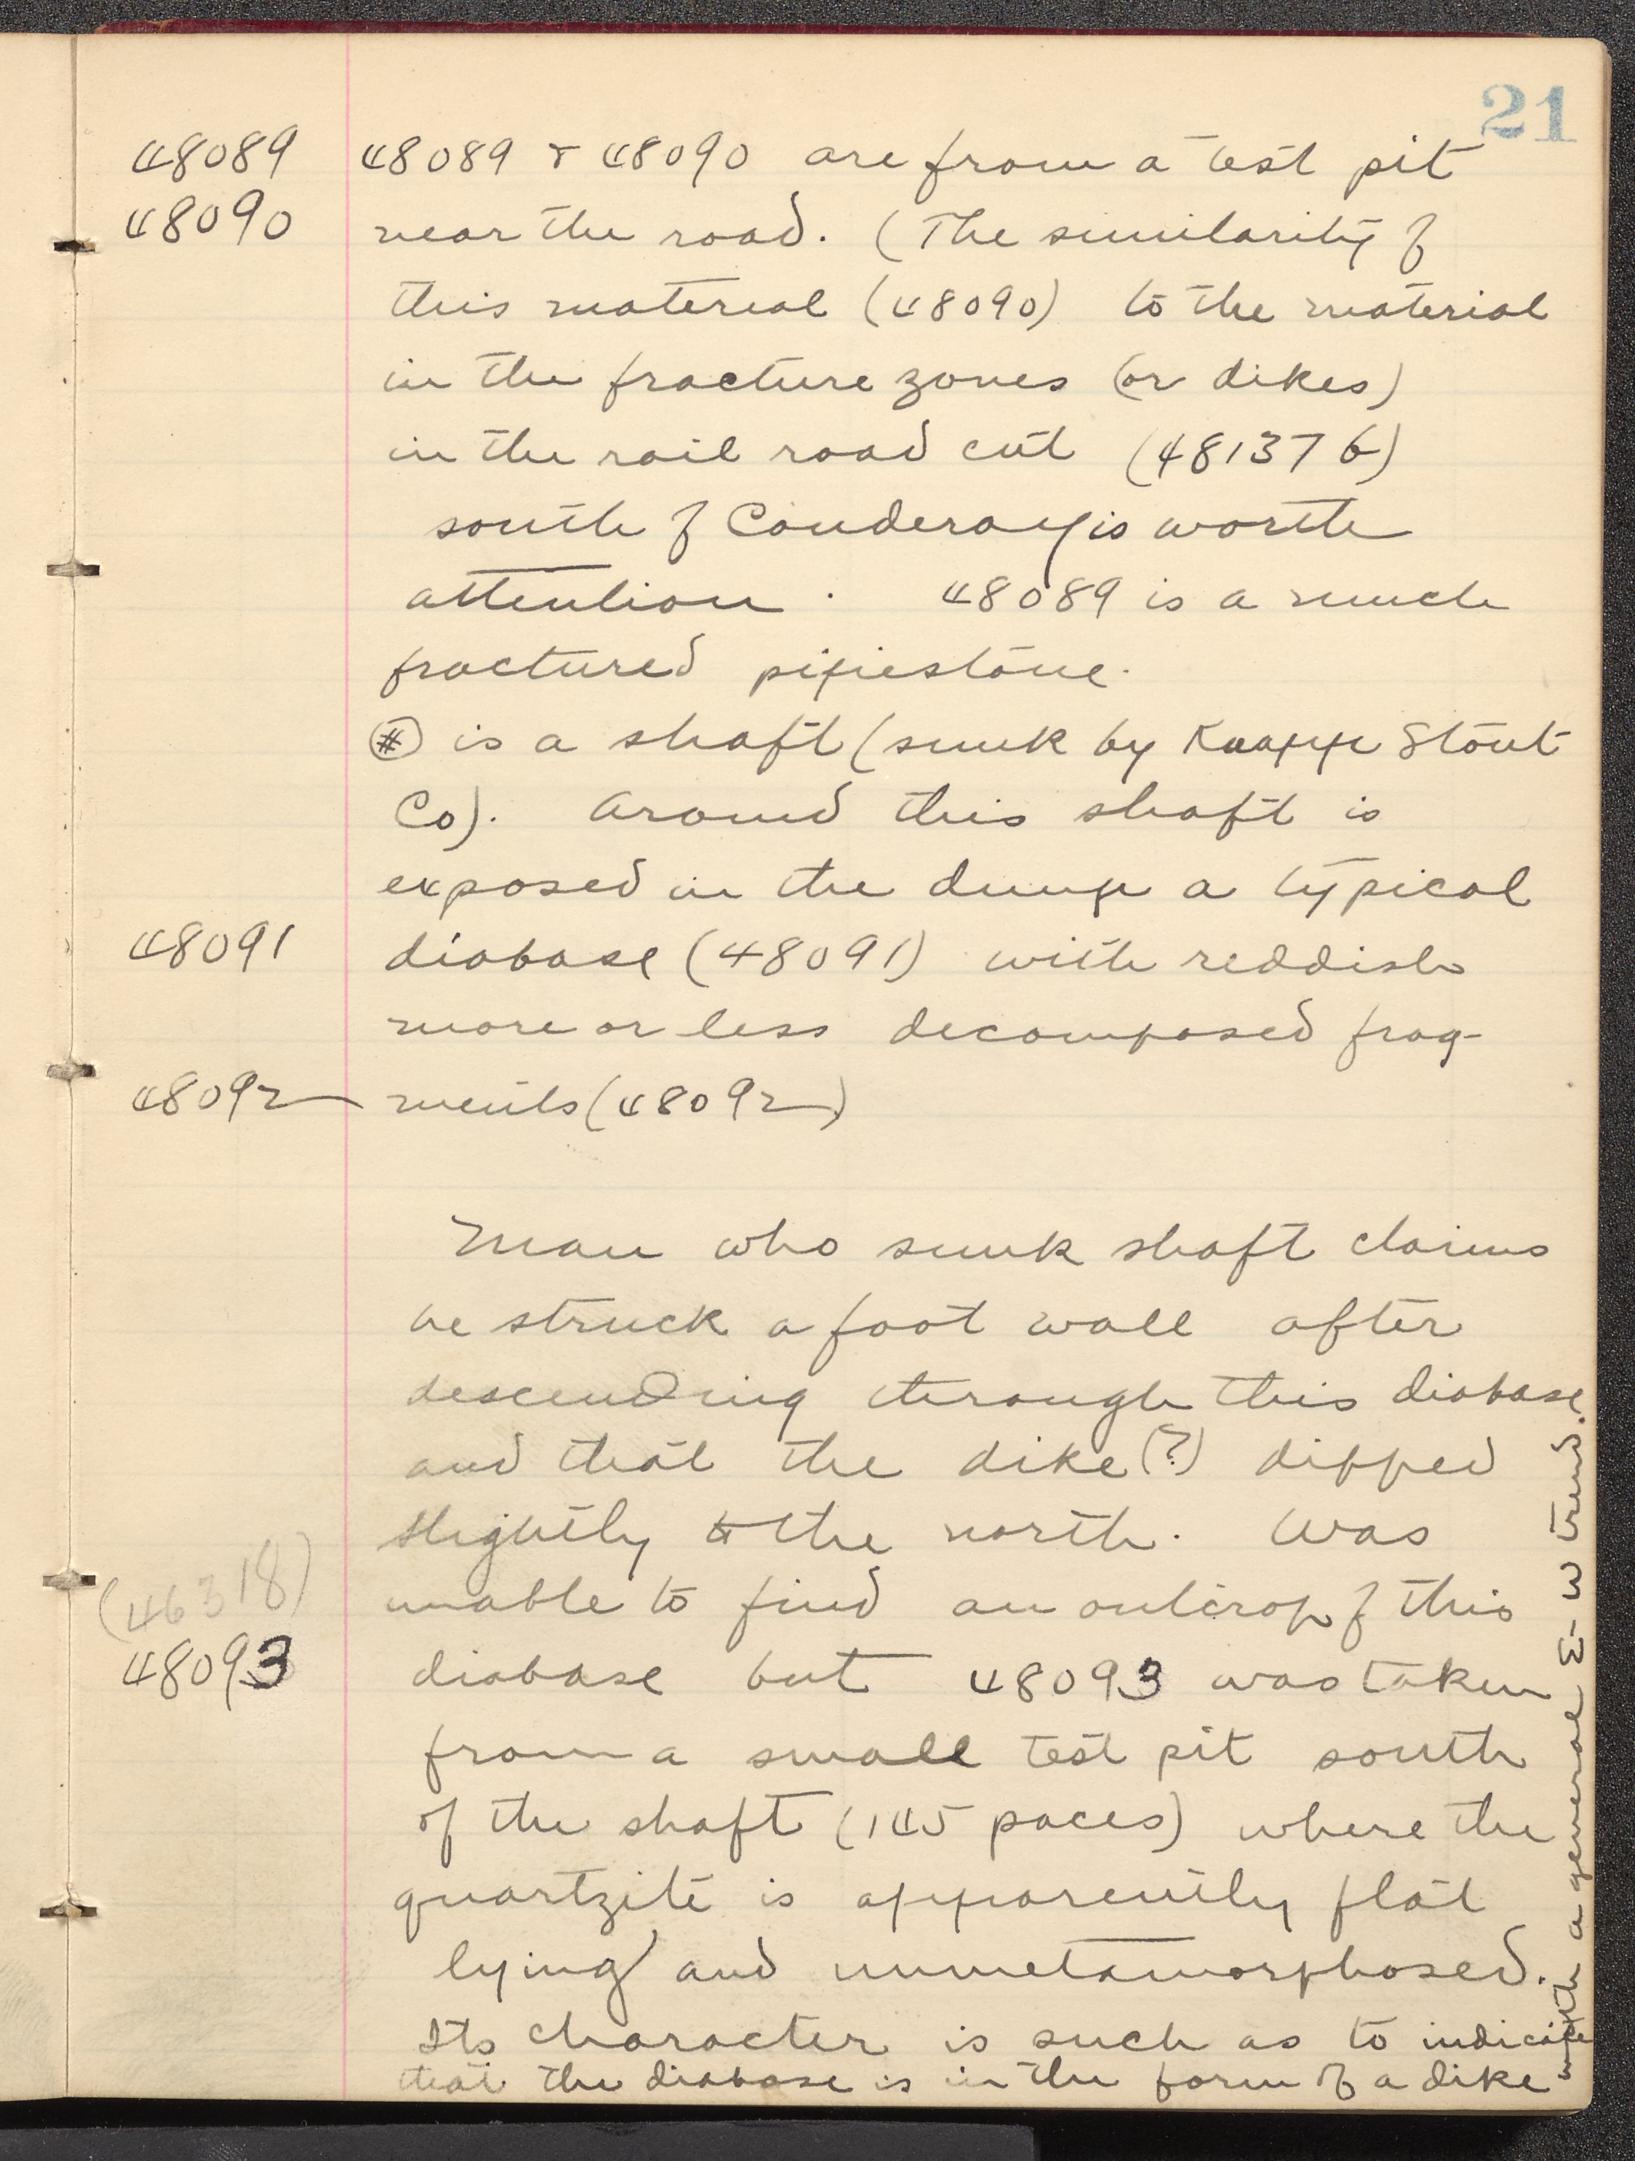 21
48089 48089 & 48090 are from a test pit
48090 near the road. (The similarity of
this material (48090) to the material
in the fracture zones (or dikes)
in the rail road cut (48137 6)
south of Couderay is worth
attention. 48089 is a much
fractured pipestone.
(#) is a shaft (sunk by Knapp Stout
Co). Around this shaft is
exposed in the dump a typical
48091 diabase (48091) with reddish
more or less decomposed frag-
48092 ments (48092)
Man who sunk shaft claims
he struck a foot wall after
descending through this diabase
and that the dike (?) dipped
slightly to the north. Was
(46318) unable to find an outcrop of this
48093 diabase but 48093 was taken
from a small test pit south
of the shaft (145 paces) where the
quartzite is apparently flat
lying and unmetamorphosed.
Its character is such as to indicate
that the diabase is in the form of a dike
with a general E-W trend.